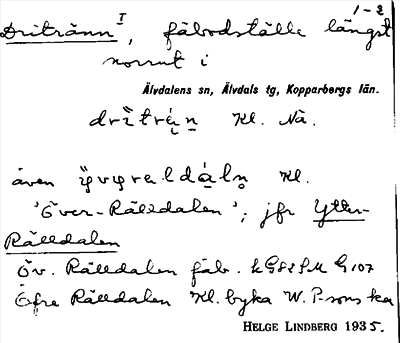 1-2
Dritränn I, fäbodställe längst
norrut i
Älvdalens sn, Älvdals tg, Kopparbergs län.
Kl. Nä.
även Kl.
'Över-Rälldalen'; jfr Ytter-
Rälldalen
Öv. Rälldalen fäb.
Öfre Rälldalen Kl. byka W. P-sons ka
HELGE LINDBERG 1935.